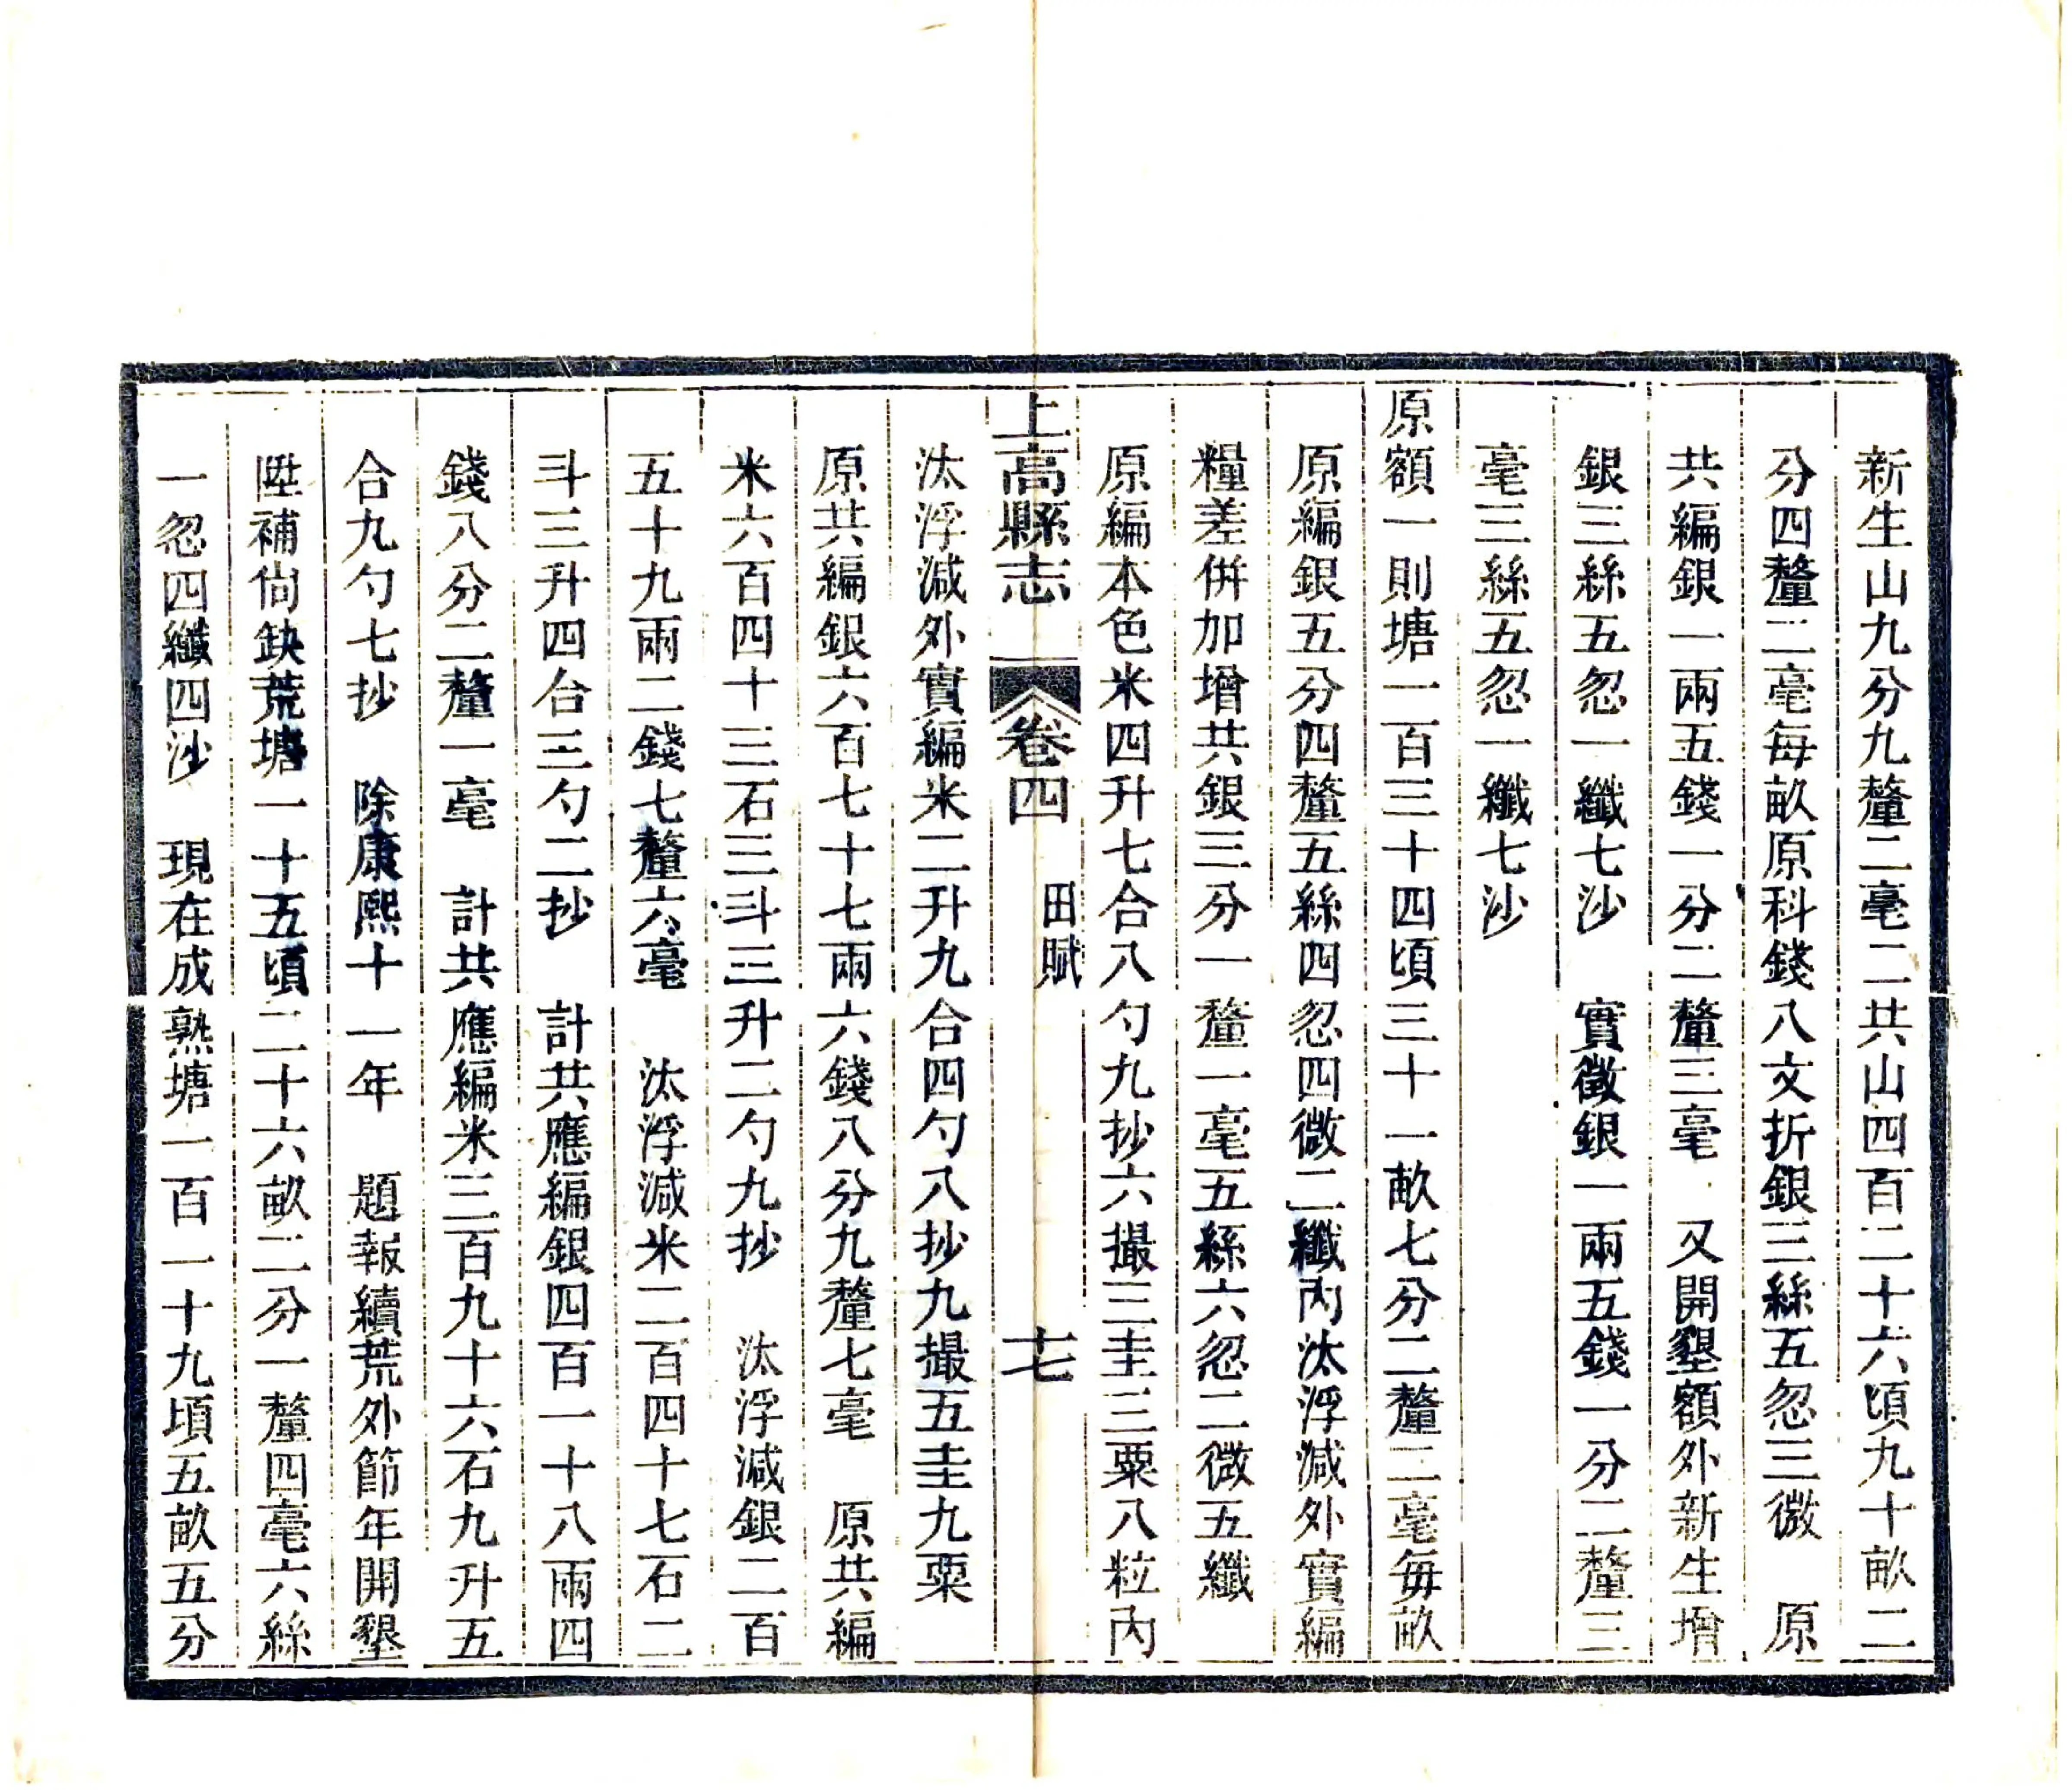 新生山九分九釐二毫二共山四百二十六頃九十畝二
分四釐二毫每畝原科錢八文折銀三絲五忽三微　原
共編銀一兩五錢一分二釐三毫　又開墾額外新生增
銀三絲五忽一纖七沙　實徵銀一兩五錢一分二釐三
毫三絲五忽一纖七沙
原額一則塘一百三十四頃三十一畝七分二釐二毫每畝
原編銀五分四釐五絲四忽四微二纖內汰浮減外實編
糧差併加增共銀三分一釐一毫五絲六忽二微五纖
原編本色米四升七合八勺九抄六撮三圭三粟八粒內
上高縣志　卷四　田賦　十七
汰浮減外實編米二升九合四勺八抄九撮五圭九粟
原共編銀六百七十七兩六錢八分九釐七毫　原共編
米六百四十三石三斗三升二勺九抄　汰浮減銀二百
五十九兩二錢七釐六毫　汰浮減米二百四十七石二
斗三升四合三勺二抄　計共應編銀四百一十八兩四
錢八分二釐一毫　計共應編米三百九十六石九升五
合九勺七抄　除康熙十一年　題報續荒外節年開墾
陞補尙缺荒塘一十五頃二十六畝二分一釐四毫六絲
一忽四纖四沙　現在成熟塘一百一十九頃五畝五分